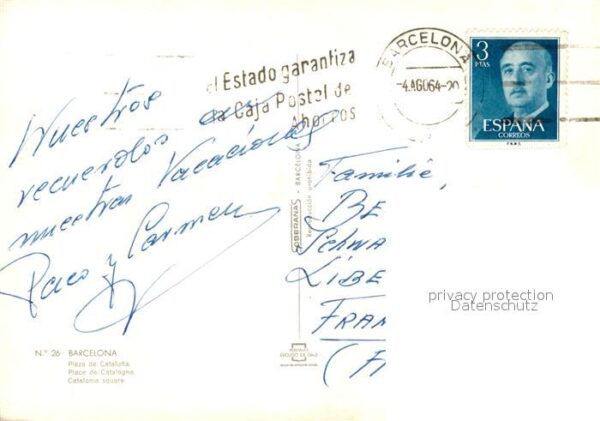 Nuestros
recuerdos en
nuestras Vacaciones
Paco y Carmen
el Estado garantiza
la Caja Postal de
Ahorros
BARCELONA
-4.AGO64-20
3
PTAS
ESPAÑA
CORREOS
F.N.M.T.
SOBERANAS - BARCELONA
Reproducción prohibida
Familie,
BE
Schwa
LIBE
FRAN
(Fr
privacy protection
Datenschutz
ESCUDO DE ORO
N.º 26 BARCELONA
Plaza de Cataluña
Place de Catalogne
Catalonia square